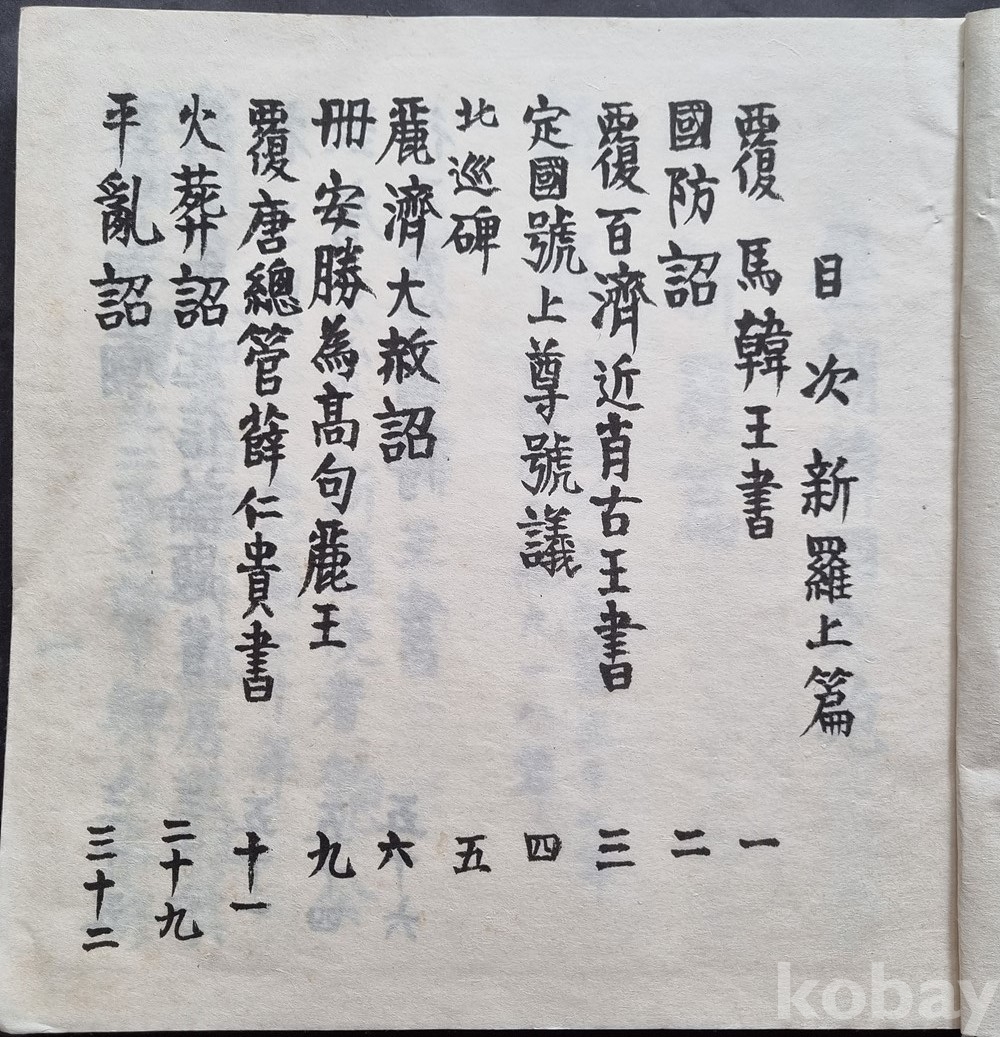 目次 新羅上篇
覆馬韓王書 一
國防詔 二
覆百濟近肖古王書 三
定國號上尊號議 四
北巡碑 五
麗濟大赦詔 六
冊安勝為高句麗王 九
覆唐總管薛仁貴書 十一
火葬詔 二十九
平亂詔 三十二
kobay